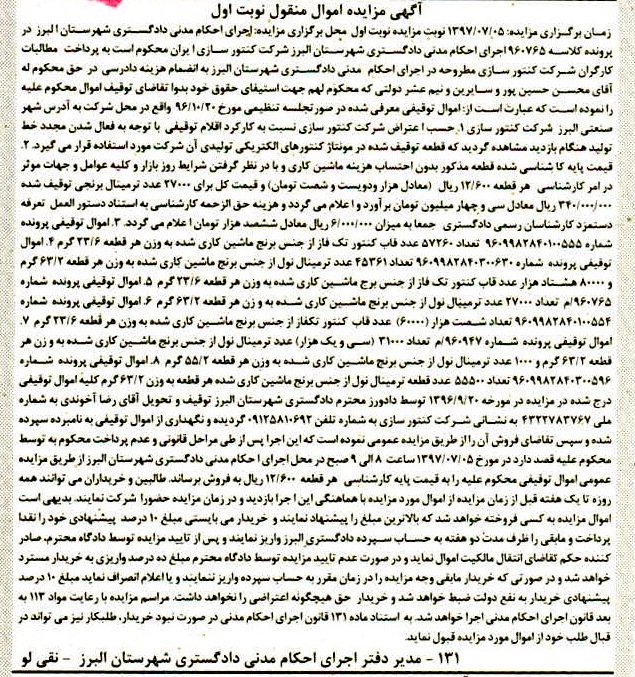 آگهی مزایده اموال منقول نوبت اول
زمان برگزاری مزایده: ۱۳۹۷/۰۷/۰۵ نوبت مزایده نوبت اول محل برگزاری مزایده: اجرای احکام مدنی دادگستری شهرستان البرز در
پرونده کلاسه ۹۶۰۷۶۵ اجرای احکام مدنی دادگستری شهرستان البرز شرکت کنتور سازی ایران محکوم است به پرداخت مطالبات
کارگران شرکت کنتور سازی مطروحه در اجرای احکام مدنی دادگستری شهرستان البرز به انضمام هزینه دادرسی در حق محکوم له
آقای محسن حسین پور و سایرین و نیم عشر دولتی که محکوم لهم جهت استیفای حقوق خود بدوا تقاضای توقیف اموال محکوم علیه
را نموده است که عبارت است از: اموال توقیفی معرفی شده در صورتجلسه تنظیمی مورخ ۹۶/۱۰/۲۰ واقع در محل شرکت به آدرس شهر
صنعتی البرز شرکت کنتور سازی ۱. حسب اعتراض شرکت کنتور سازی نسبت به کارکرد اقلام توقیفی با توجه به فعال شدن مجدد خط
تولید هنگام بازدید مشاهده گردید که قطعه توقیف شده در مونتاژ کنتورهای الکتریکی تولیدی آن شرکت مورد استفاده قرار می گیرد. ۲.
قیمت پایه کا شناسی شده قطعه مذکور بدون احتساب هزینه ماشین کاری و با در نظر گرفتن شرایط روز بازار و کلیه عوامل و جهات موثر
در امر کارشناسی هر قطعه ۱۲/۶۰۰ ریال (معادل هزار ودویست و شصت تومان) و قیمت کل برای ۲۷۰۰۰ عدد ترمینال برنجی توقیف شده
۳۴۰/۰۰۰/۰۰۰ ریال معادل سی و چهار میلیون تومان برآورد و اعلام می گردد و هزینه حق الزحمه کارشناسی به استناد دستور العمل تعرفه
دستمزد کارشناسان رسمی دادگستری جمعا به میزان ۶/۰۰۰/۰۰۰ ریال معادل ششصد هزار تومان اعلام می گردد. ۳. اموال توقیفی پرونده
شماره ۹۶۰۹۹۸۲۸۴۰۱۰۰۵۵۵ تعداد ۵۷۲۶۰ عدد قاب کنتور تک فاز از جنس برنج ماشین کاری شده به وزن هر قطعه ۲۳/۶ گرم ۴. اموال
توقیفی پرونده شماره ۹۶۰۹۹۸۲۸۴۰۳۰۰۶۳۰ تعداد ۴۵۳۶۱ عدد ترمینال نول از جنس برنج ماشین کاری شده به وزن هر قطعه ۶۳/۲ گرم
و ۸۰۰۰۰ هشتاد هزار عدد قاب کنتور تک فاز از جنس برنج ماشین کاری شده به وزن هر قطعه ۲۳/۶ گرم ۵. اموال توقیفی پرونده شماره
۹۶۰۷۶۵/م تعداد ۲۷۰۰۰ عدد ترمینال نول از جنس برنج ماشین کاری شده به و زن هر قطعه ۶۳/۲ گرم ۶. اموال توقیفی پرونده شماره
۹۶۰۹۹۸۲۸۴۰۱۰۰۵۵۴ تعداد شصت هزار (۶۰۰۰۰) عدد قاب کنتور تکفاز از جنس برنج ماشین کاری شده به وزن هر قطعه ۲۳/۶ گرم ۷.
اموال توقیفی پرونده شماره ۹۶۰۹۴۷/م تعداد ۳۱۰۰۰ (سی و یک هزار) عدد ترمینال نول از جنس برنج ماشین کاری شده به و زن هر
قطعه ۶۳/۲ گرم و ۱۰۰۰ عدد ترمینال نول از جنس برنج ماشین کاری شده به وزن هر قطعه ۵۵/۲ گرم ۸. اموال توقیفی پرونده شماره
۹۶۰۹۹۸۲۸۴۰۳۰۰۵۹۶ تعداد ۵۵۵۰۰ عدد قطعه ترمینال نول از جنس برنج ماشین کاری شده هر قطعه به وزن ۶۳/۲ گرم کلیه اموال توقیفی
درج شده در مزایده در مورخه ۱۳۹۶/۹/۲۰ توسط دادورز محترم دادگستری شهرستان البرز توقیف و تحویل آقای رضا آخوندی به شماره
ملی ۴۳۲۲۷۸۳۷۶۷ به نشانی شرکت کنتور سازی به شماره تلفن ۰۹۱۲۵۸۱۰۶۹۲ گردیده و نگهداری از اموال توقیفی به نامبرده سپرده
شده و سپس تقاضای فروش آن را از طریق مزایده عمومی نموده است که این اجرا پس از طی مراحل قانونی و عدم پرداخت محکوم به توسط
محکوم علیه قصد دارد در مورخ ۱۳۹۷/۰۷/۰۵ ساعت ۸ الی ۹ صبح در محل اجرای احکام مدنی دادگستری شهرستان البرز از طریق مزایده
عمومی اموال توقیفی محکوم علیه را به قیمت پایه کارشناسی هر قطعه ۱۲/۶۰۰ ریال به فروش برساند. طالبین و خریداران می توانند همه
روزه تا یک هفته قبل از زمان مزایده از اموال مورد مزایده با هماهنگی این اجرا بازدید و در زمان مزایده حضورا شرکت نمایند. بدیهی است
اموال مزایده به کسی فروخته خواهد شد که بالاترین مبلغ را پیشنهاد نمایند و خریدار می بایستی مبلغ ۱۰ درصد پیشنهادی خود را نقدا
پرداخت و مابقی را ظرف مدت دو هفته به حساب سپرده دادگستری البرز واریز نمایند و پس از تایید مزایده توسط دادگاه محترم، صادر
کننده حکم تقاضای انتقال مالکیت اموال نماید و در صورت عدم تایید مزایده توسط دادگاه محترم مبلغ ده درصد واریزی به خریدار مسترد
خواهد شد و در صورتی که خریدار مابقی وجه مزایده را در زمان مقرر به حساب سپرده واریز ننمایند و یا اعلام انصراف نماید مبلغ ۱۰ درصد
پیشنهادی خریدار به نفع دولت ضبط خواهد شد و خریدار حق هیچگونه اعتراضی را نخواهد داشت. مراسم مزایده با رعایت مواد ۱۱۳ به
بعد قانون اجرای احکام مدنی اجرا خواهد شد. به استناد ماده ۱۳۱ قانون اجرای احکام مدنی در صورت نبود خریدار، طلبکار نیز می تواند در
قبال طلب خود از اموال مورد مزایده قبول نماید.
۱۳۱ - مدیر دفتر اجرای احکام مدنی دادگستری شهرستان البرز - نقی لو